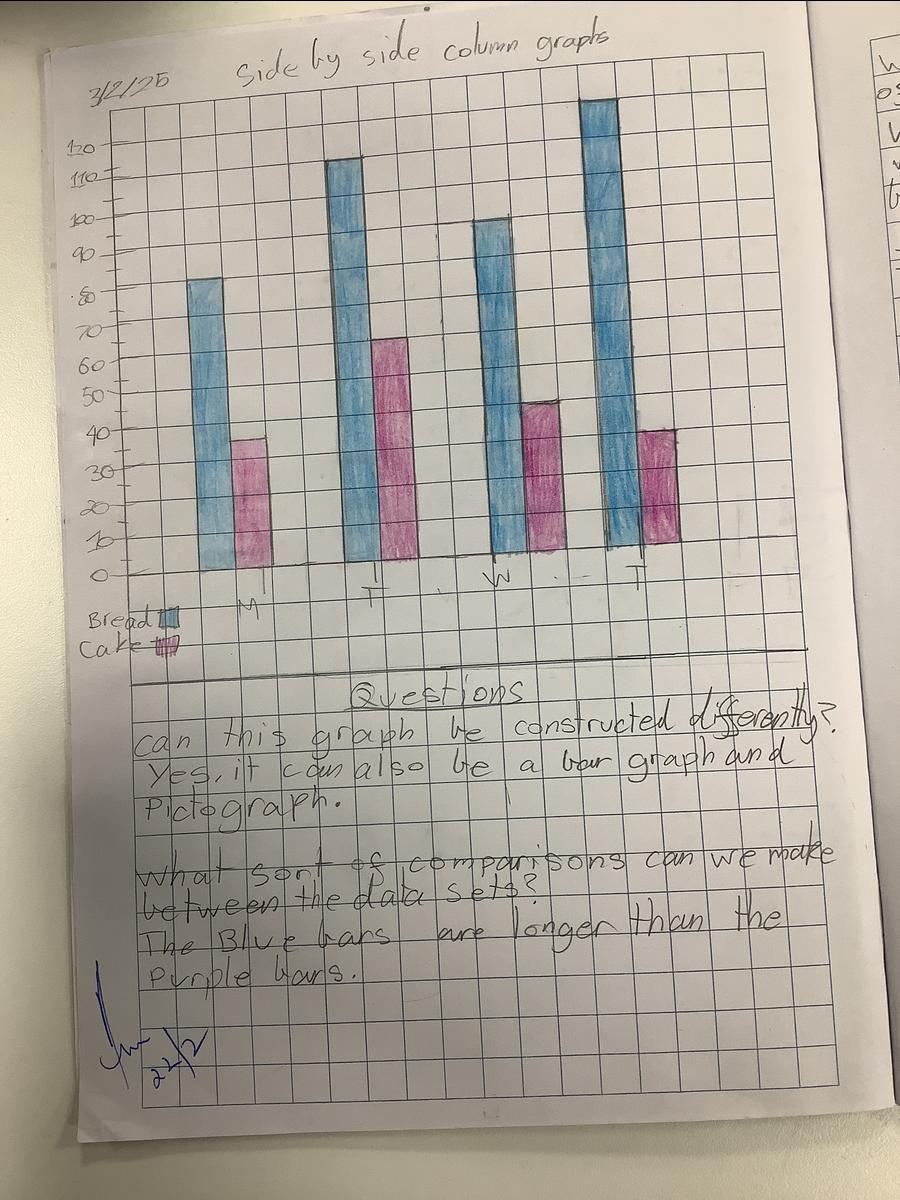 3/2/25
Side by side column graphs
120
110
100
90
80
70
60
50
40
30
20
10
0
M T W T
Bread
Cake
Questions
Can this graph be constructed differently?
Yes, it can also be a bar graph and
Pictograph.
What sort of comparisons can we make
between the data sets?
The Blue bars are longer than the
Purple bars.
22/2